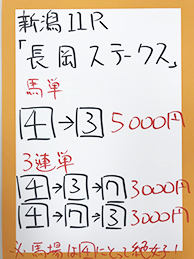 新潟11R
「長岡ステークス」
馬単
4→3 5000円
3連単
4→3→7 3000円
4→7→3 3000円
※馬場は4にとって絶好!